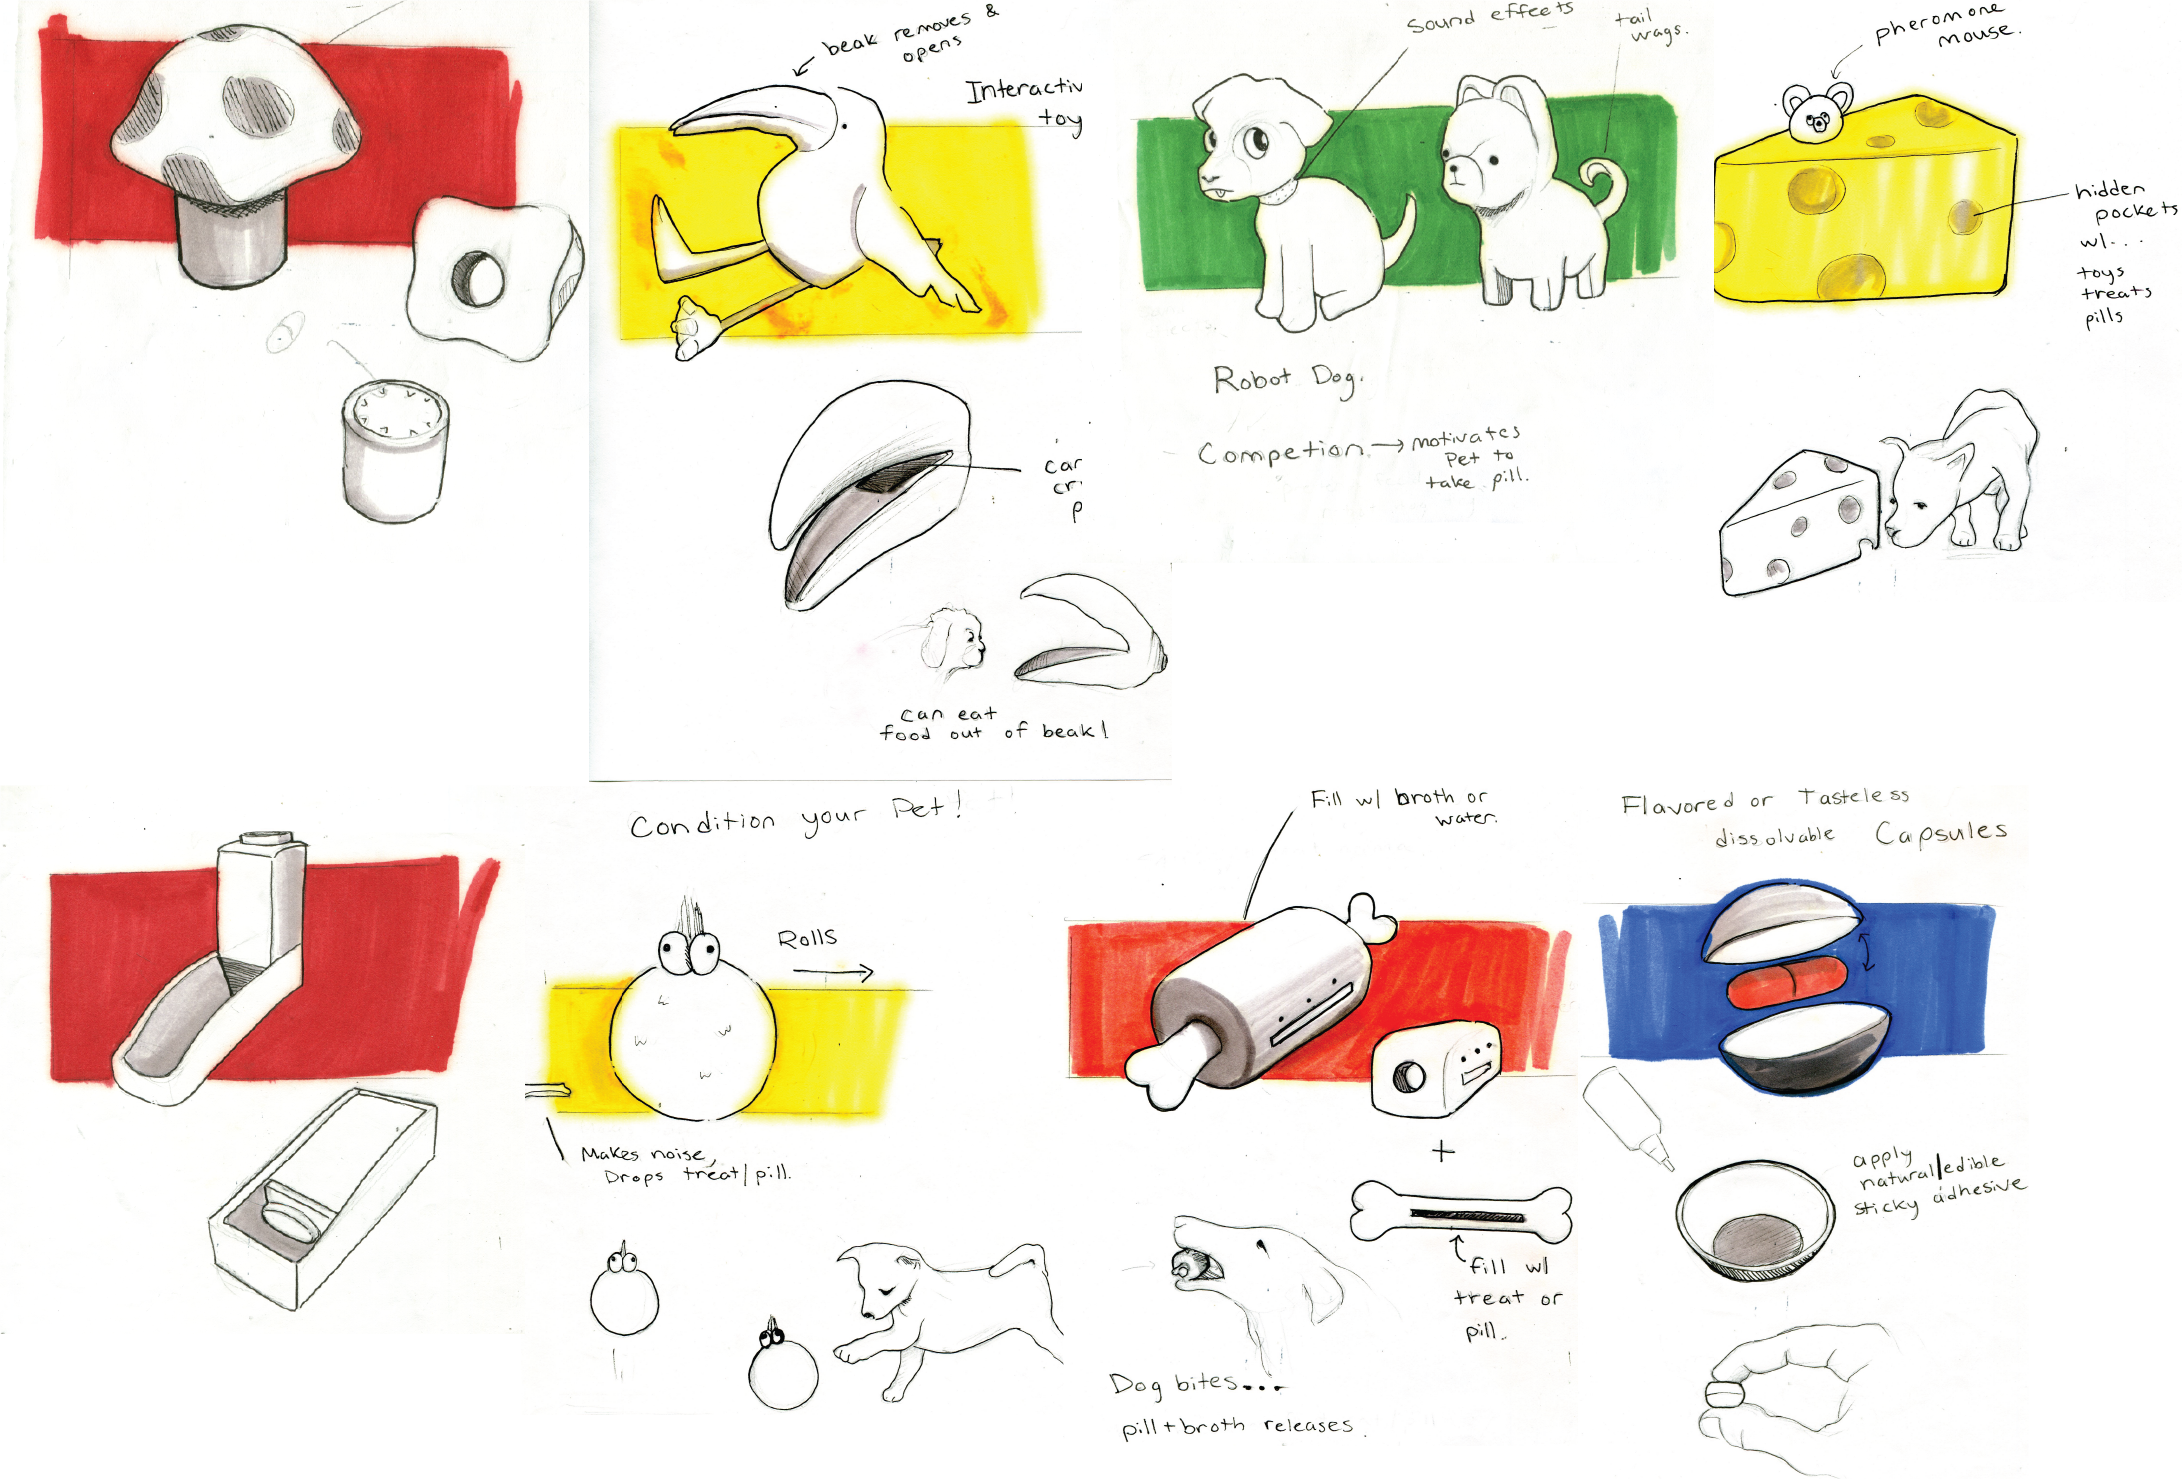 beak removes &
opens
Interactiv
toy
car
cr
p
can eat
food out of beak!
Sound effects
tail
wags.
Robot Dog.
Competion → motivates
Pet to
take pill.
pheromone
mouse.
hidden
pockets
w/...
toys
treats
pills
Condition your Pet!
Rolls
Makes noise,
Drops treat/pill.
Fill w/ broth or
water.
+
fill w/
treat or
pill.
Dog bites...
pill + broth releases.
Flavored or Tasteless
dissolvable Capsules
apply
natural/edible
sticky adhesive